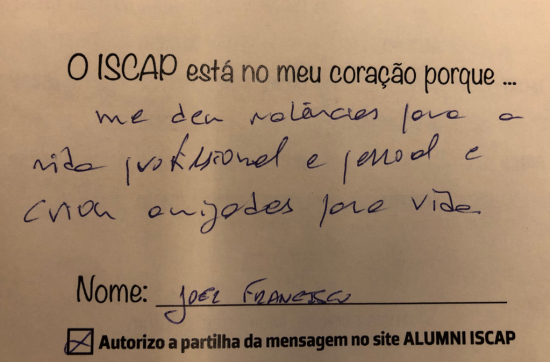 O ISCAP está no meu coração porque ...
me deu valências para a
vida profissional e pessoal e
criou amizades para vida
Nome: Joel Francisco
Autorizo a partilha da mensagem no site ALUMNI ISCAP